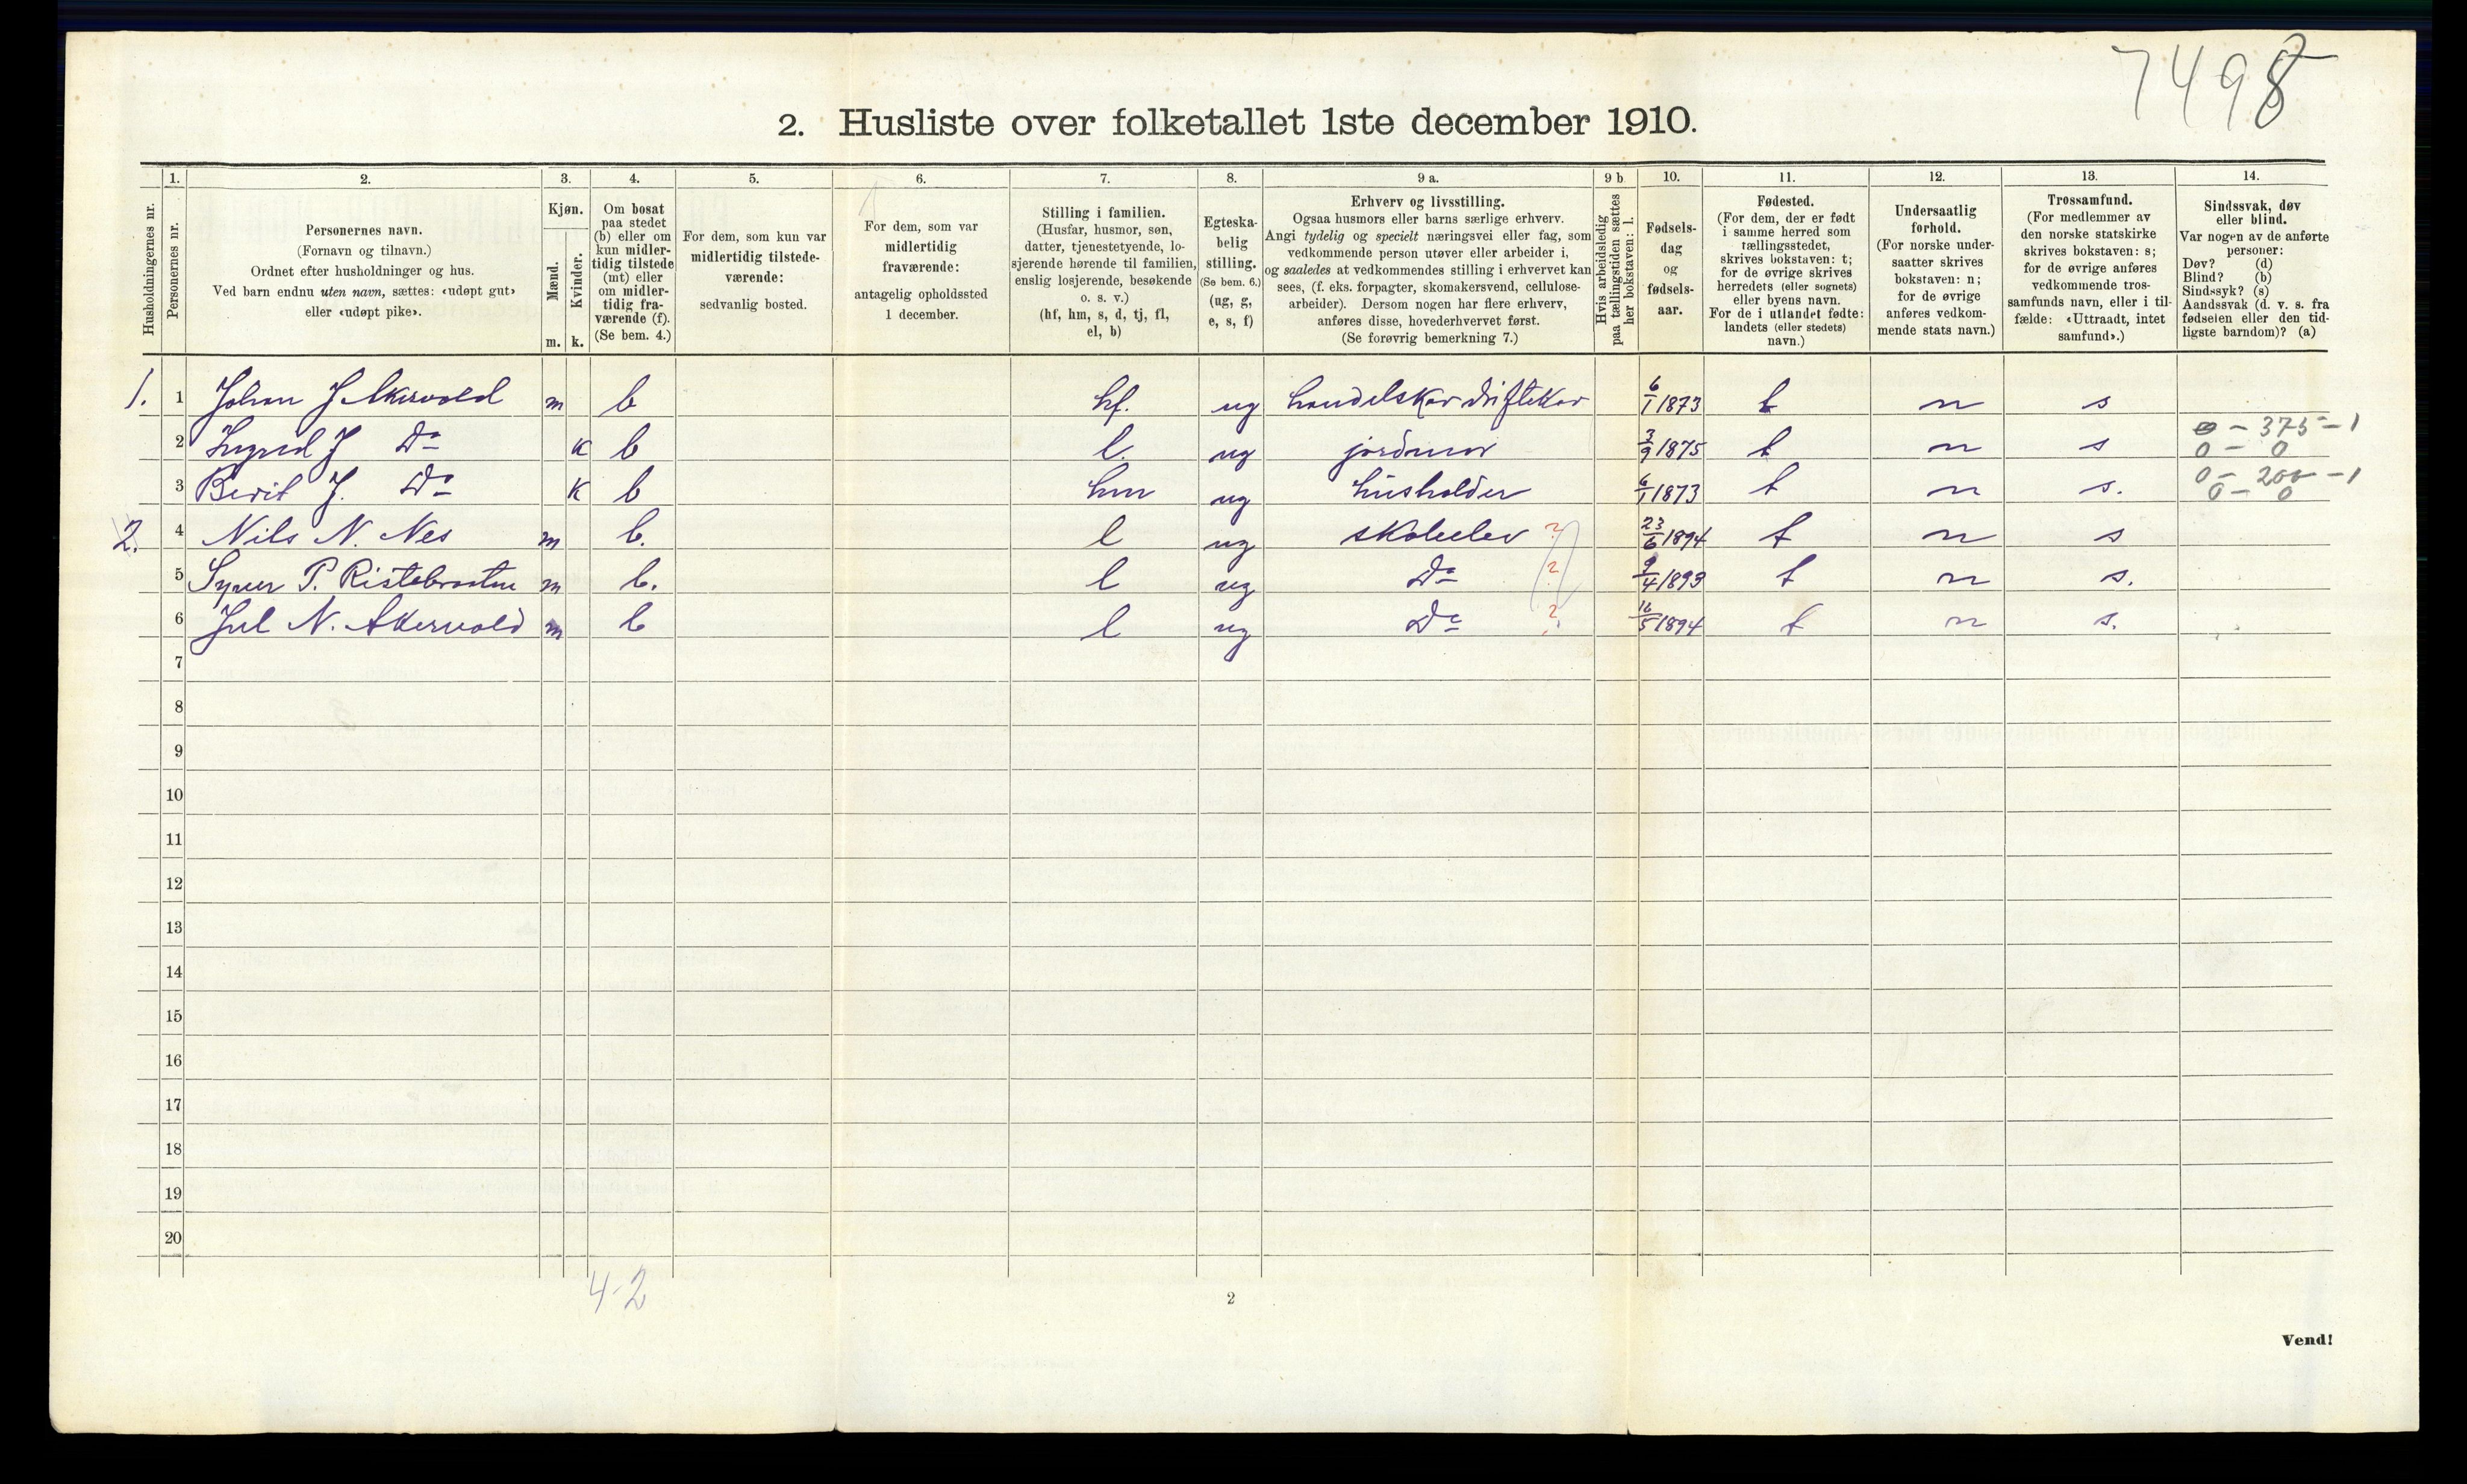 7498
2. Husliste over folketallet 1ste december 1910.
Husholdningernes nr.
1.
Personernes nr.
2.
Personernes navn.
(Fornavn og tilnavn.)
Ordnet efter husholdninger og hus.
Ved barn endnu uten navn, sættes: «udøpt gut»
eller «udøpt pike».
3.
Kjøn.
Mænd.
Kvinder.
m. k.
4.
Om bosat
paa stedet
(b) eller om
kun midler-
tidig tilstede
(mt) eller
om midler-
tidig fra-
værende (f).
(Se bem. 4.)
5.
For dem, som kun var
midlertidig tilstede-
værende:
sedvanlig bosted.
6.
For dem, som var
midlertidig
fraværende:
antagelig opholdssted
1 december.
7.
Stilling i familien.
(Husfar, husmor, søn,
datter, tjenestetyende, lo-
sjerende hørende til familien,
enslig losjerende, besøkende
o. s. v.)
(hf, hm, s, d, tj, fl,
el, b)
8.
Egteska-
belig
stilling.
(Se bem. 6.)
(ug, g,
e, s, f)
9 a.
Erhverv og livsstilling.
Ogsaa husmors eller barns særlige erhverv.
Angi tydelig og specielt næringsvei eller fag, som
vedkommende person utøver eller arbeider i,
og saaledes at vedkommendes stilling i erhvervet kan
sees, (f. eks. forpagter, skomakersvend, cellulose-
arbeider). Dersom nogen har flere erhverv,
anføres disse, hovederhvervet først.
(Se forøvrig bemerkning 7.)
9 b
Hvis arbeidsledig
paa tællingstiden sættes
her bokstaven: l.
10.
Fødsels-
dag
og
fødsels-
aar.
11.
Fødested.
(For dem, der er født
i samme herred som
tællingsstedet,
skrives bokstaven: t;
for de øvrige skrives
herredets (eller sognets)
eller byens navn.
For de i utlandet fødte:
landets (eller stedets)
navn.)
12.
Undersaatlig
forhold.
(For norske under-
saatter skrives
bokstaven: n;
for de øvrige
anføres vedkom-
mende stats navn.)
13.
Trossamfund.
(For medlemmer av
den norske statskirke
skrives bokstaven: s;
for de øvrige anføres
vedkommende tros-
samfunds navn, eller i til-
fælde: «Uttraadt, intet
samfund».)
14.
Sindssvak, døv
eller blind.
Var nogen av de anførte
personer:
Døv? (d)
Blind? (b)
Sindssyk? (s)
Aandssvak (d. v. s. fra
fødselen eller den tid-
ligste barndom)? (a)
1. 1 Johan J Akervold m b hf. ug handelskar driftekar 6/1 1873 t n s
0 - 375 - 1
2 Ingrid J Do k b l. ug jordmor 3/9 1875 t n s 0 - 0
0 - 200 - 1
3 Berit J. Do k b hm ug husholder 6/1 1873 t n s. 0 - 0
2. 4 Nils N. Nes m b. l ug skoleelev ? 23/6 1894 t n s
5 Syver P. Ristebraaten m b. l ug Do ? 9/4 1893 t n s.
6 Jul N. Akervold m b l ug Do ? 16/5 1894 t n s.
7
8
9
10
11
12
13
14
15
16
17
18
19
20
4-2
2
Vend!